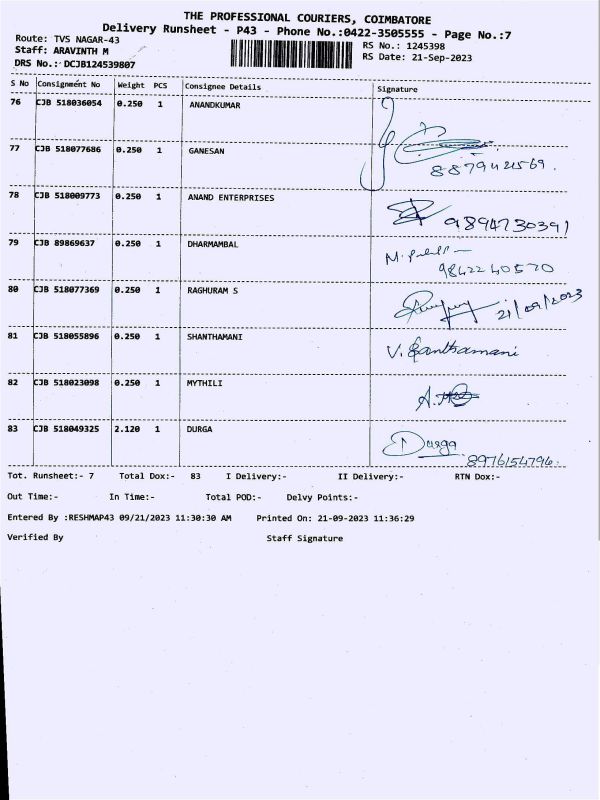 THE PROFESSIONAL COURIERS, COIMBATORE
Delivery Runsheet - P43 - Phone No.:0422-3505555 - Page No.:7
Route: TVS NAGAR-43
RS No.: 1245398
Staff: ARAVINTH M
RS Date: 21-Sep-2023
DRS No.: DCJB124539807
S No Consignment No Weight PCS Consignee Details Signature
76 CJB 518036054 0.250 1 ANANDKUMAR
77 CJB 518077686 0.250 1 GANESAN
78 CJB 518009773 0.250 1 ANAND ENTERPRISES
9894730391
79 CJB 89869637 0.250 1 DHARMAMBAL
9842240570
80 CJB 518077369 0.250 1 RAGHURAM S
21/09/2023
81 CJB 518055896 0.250 1 SHANTHAMANI V. Santhamani
82 CJB 518023098 0.250 1 MYTHILI
83 CJB 518049325 2.120 1 DURGA Durga
8976154796
Tot. Runsheet:- 7 Total Dox:- 83 I Delivery:- II Delivery:- RTN Dox:-
Out Time:- In Time:- Total POD:- Delvy Points:-
Entered By :RESHMAP43 09/21/2023 11:30:30 AM Printed On: 21-09-2023 11:36:29
Verified By Staff Signature